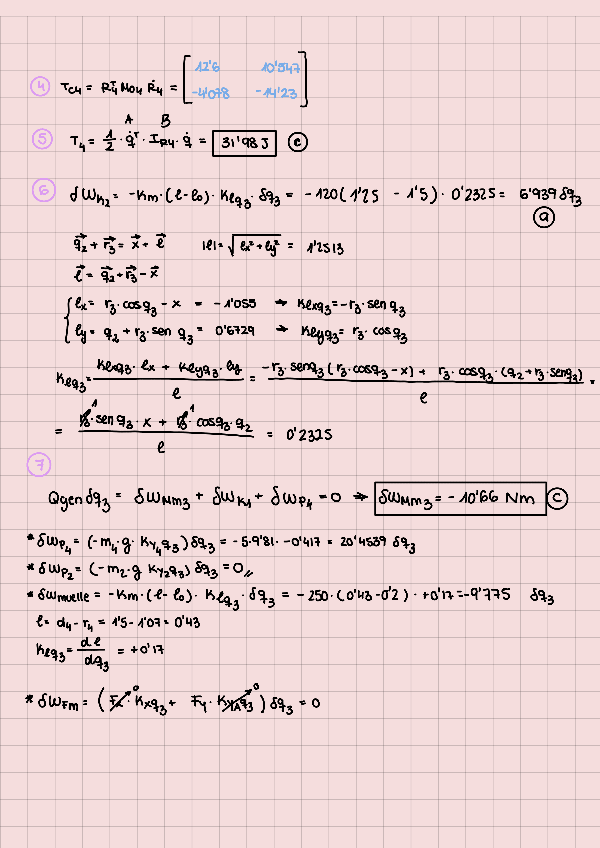 ④ TC4 = R4ᵀ M04 Ṙ4 = [ 12'6 10'547
-4'078 -14'23 ]
A B
⑤ T4 = 1/2 · q̇ᵀ · IR4 · q̇ = 31'98 J ⓒ
⑥ δWK2 = -Km · (l - l0) · Klq3 · δq3 = -120 (1'25 - 1'5) · 0'2325 = 6'939 δq3
ⓐ
q2 + r3 = x + l |l| = √(lx² + ly²) = 1'2513
l = q2 + r3 - x
{ lx = r3 · cos q3 - x = -1'055 → Klxq3 = -r3 · sen q3
ly = q2 + r3 · sen q3 = 0'6729 → Klyq3 = r3 · cos q3
Klq3 = (Klxq3 · lx + Klyq3 · ly) / l = (-r3 · senq3 (r3 · cosq3 - x) + r3 · cosq3 · (q2 + r3 · senq3)) / l =
= (r3¹ · sen q3 · x + r3¹ · cosq3 · q2) / l = 0'2325
⑦
Qgen δq3 = δWMm3 + δWK1 + δWP4 = 0 → δWMm3 = -10'66 Nm ⓒ
* δWP4 = (-m4 · g · KY4q3) δq3 = -5·9'81 · -0'417 = 20'4539 δq3
* δWP2 = (-m2 · g KY2q3) δq3 = 0,,
* δWmuelle = -Km · (l - l0) · Klq3 · δq3 = -250 · (0'43 - 0'2) · +0'17 = -9'775 δq3
l = d4 - r4 = 1'5 - 1'07 = 0'43
Klq3 = dl/dq3 = +0'17
* δWFm = (Fx⁰ · KXq3 + FY · KYAq3⁰) δq3 = 0